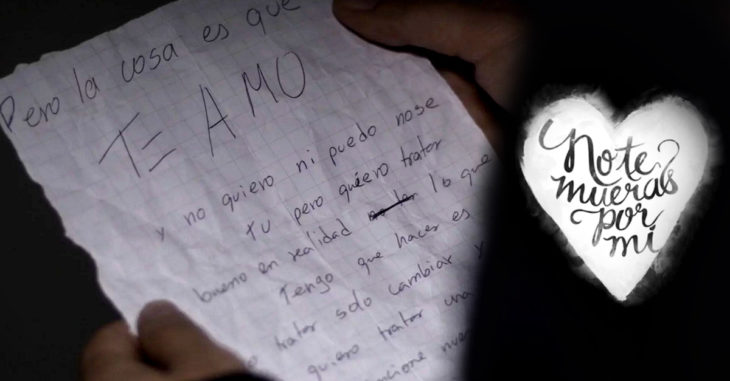 Pero la cosa es que
TE AMO
y no quiero ni puedo nose
Tu pero quiero tratar
bueno en realidad lo que
Tengo que hacer es
tratar solo cambiar y
quiero tratar una
No te
mueras
por
mi